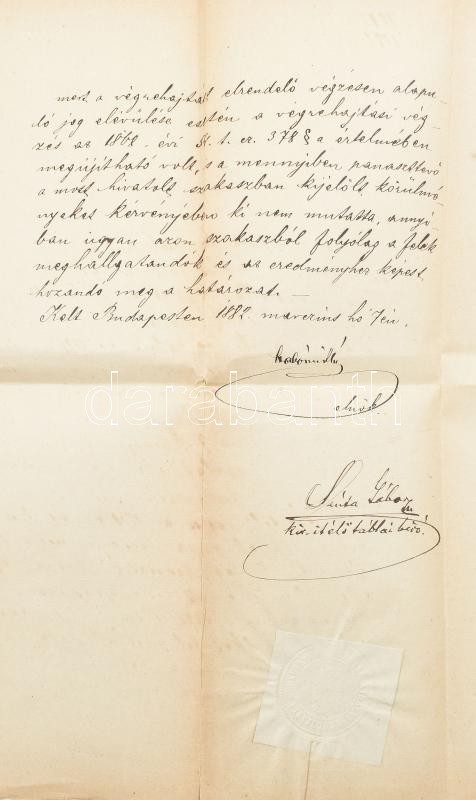 mert a végrehajtást elrendelő végzésen alapu-
ló jog elévülése esetén a végrehajtási vég-
zés az 1868. évi 54. t. cz. 378 § a értelmében
megújítható volt, s a mennyiben panasztevő
a most hivatolt szakaszban kijelölt körülmé
nyeket kérvényében ki nem mutatta, annyi
ban ugyan azon szakaszból folyólag a felek
meghallgatandók és az eredményhez képest
hozandó meg a határozat. –
Kelt Budapesten 1882. marczius hó 7én.
elnök.
Gábor
kir. itélő táblai biró.
darabanth